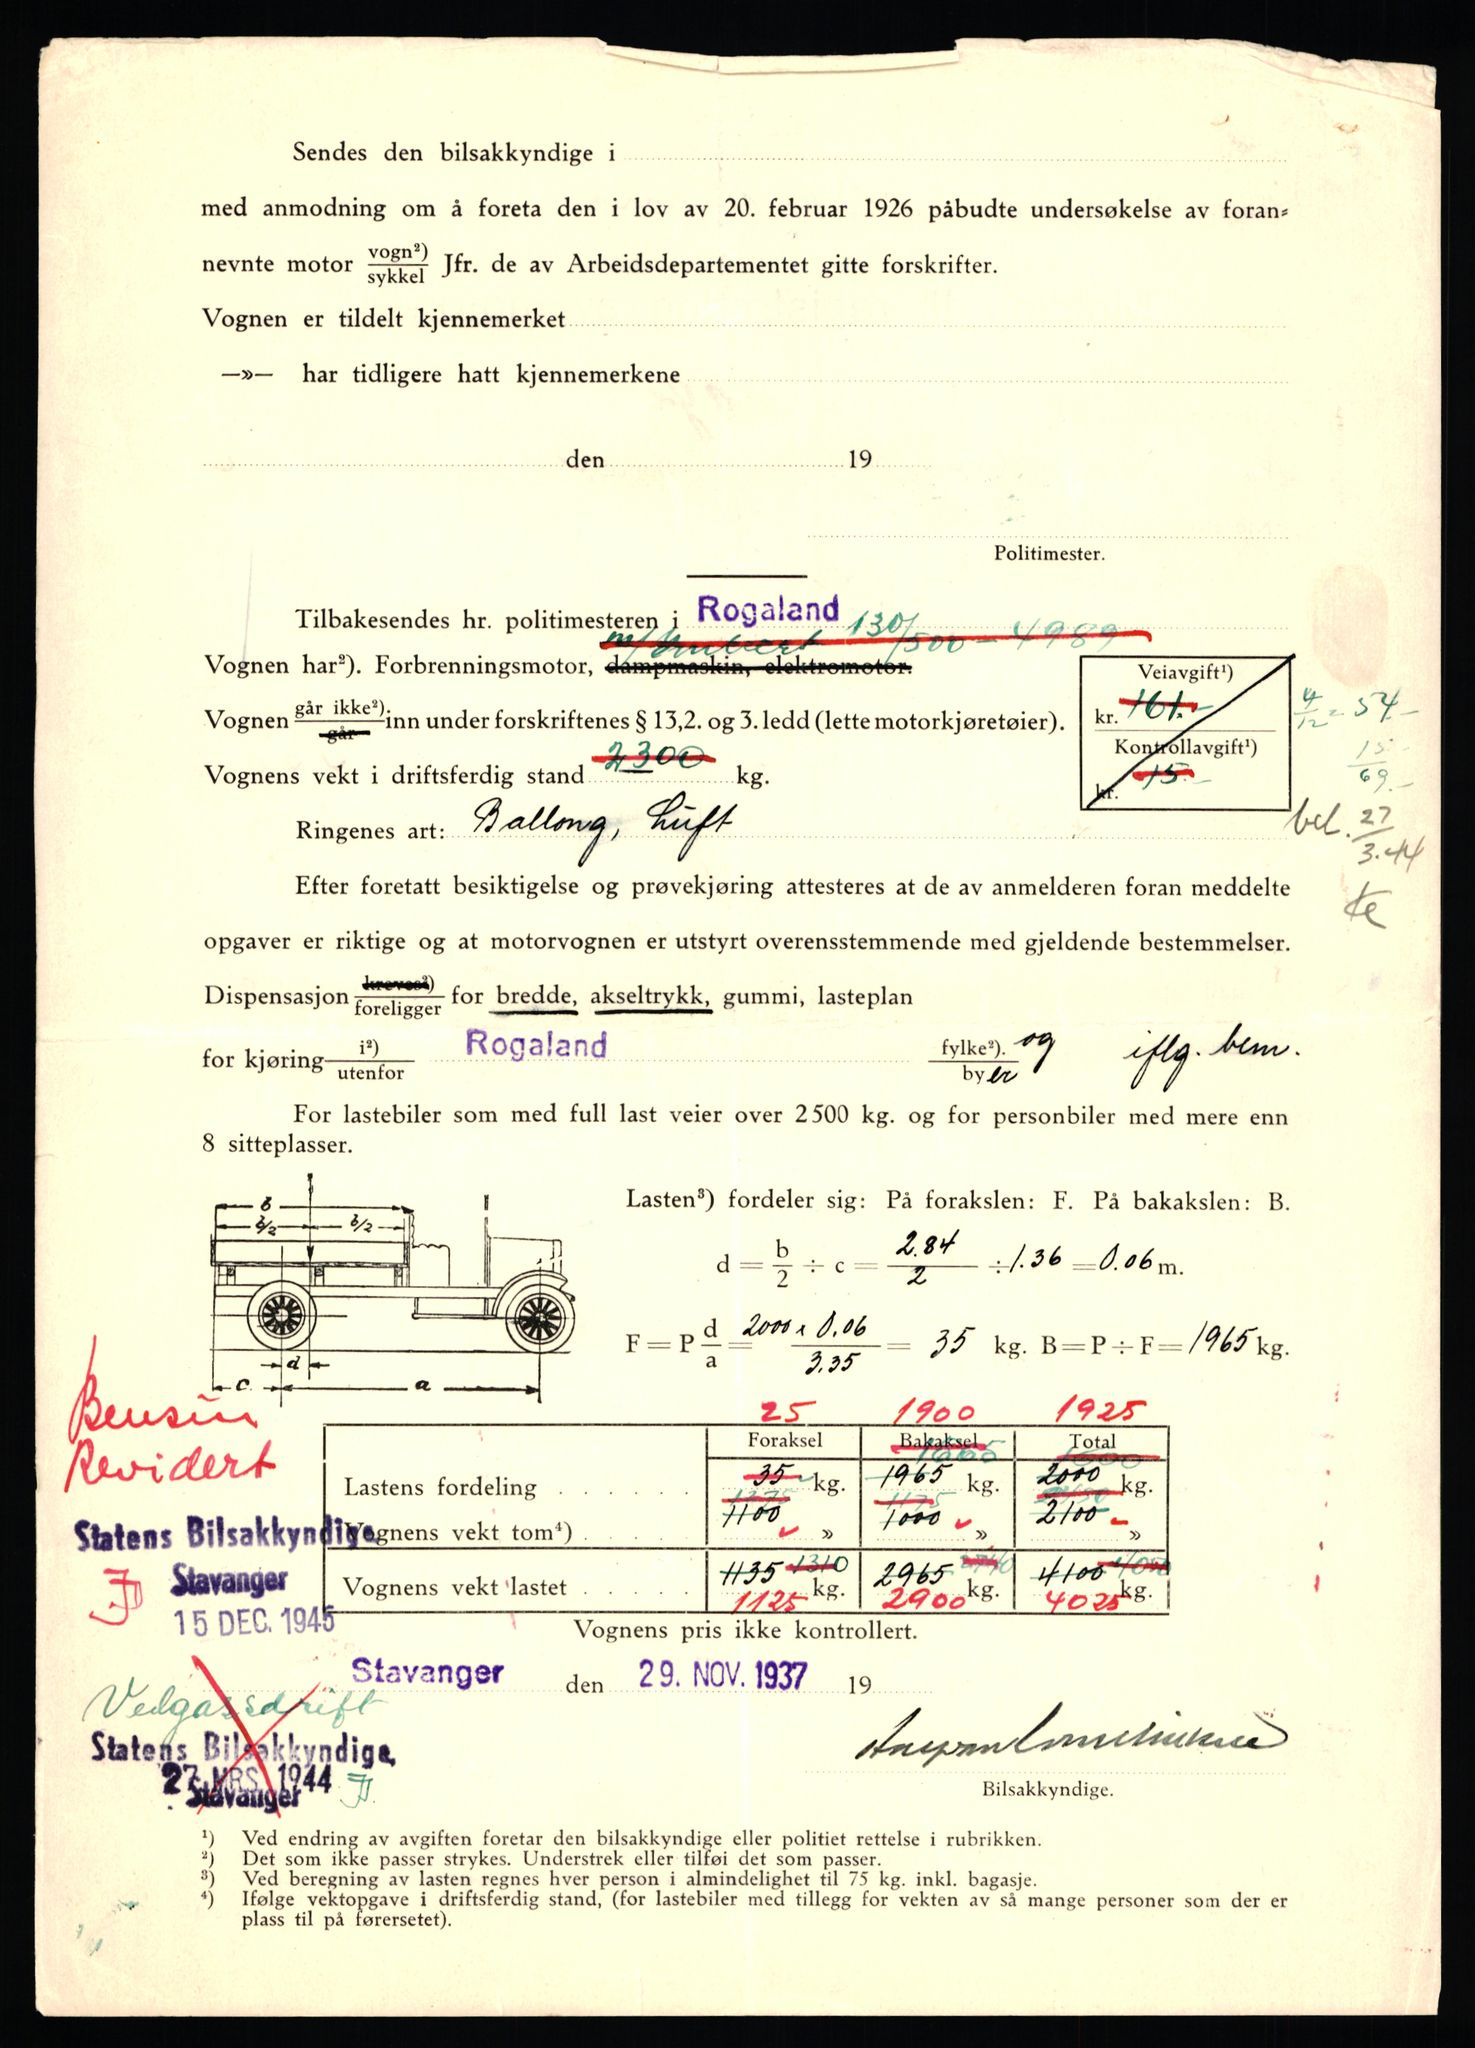 Sendes den bilsakkyndige i
med anmodning om å foreta den i lov av 20. februar 1926 påbudte undersøkelse av foran=
nevnte motor vogn²)/sykkel Jfr. de av Arbeidsdepartementet gitte forskrifter.
Vognen er tildelt kjennemerket
—»— har tidligere hatt kjennemerkene
den 19
Politimester.
Tilbakesendes hr. politimesteren i Rogaland
130/500 - 4989
Vognen har²). Forbrenningsmotor, dampmaskin, elektromotor.
Veiavgift¹)
kr. 161.-
4/12 = 54.-
Vognen går ikke²)/går inn under forskriftenes § 13,2. og 3. ledd (lette motorkjøretøier).
Kontrollavgift¹)
kr. 15.-
15.-
69.-
Vognens vekt i driftsferdig stand 2300 kg.
Ringenes art: Ballong, Luft
bet. 27/3.44
Efter foretatt besiktigelse og prøvekjøring attesteres at de av anmelderen foran meddelte
opgaver er riktige og at motorvognen er utstyrt overensstemmende med gjeldende bestemmelser.
Dispensasjon kreves²)/foreligger for bredde, akseltrykk, gummi, lasteplan
for kjøring i²)/utenfor Rogaland fylke²). og/byer iflg. bem.
For lastebiler som med full last veier over 2500 kg. og for personbiler med mere enn
8 sitteplasser.
b
b/2 b/2
d
c a
Lasten³) fordeler sig: På forakslen: F. På bakakslen: B.
d = b/2 ÷ c = 2.84/2 ÷ 1.36 = 0.06 m.
F = P d/a = 2000 x 0.06/3.35 = 35 kg. B = P ÷ F = 1965 kg.
Bensin
Revidert
25 1900 1925
Foraksel Bakaksel Total
Lastens fordeling . . . . . . 35 kg. 1965 kg. 2000 kg.
1275 1175
Vognens vekt tom⁴) . . . . 1100 » 1000 » 2100 »
1310
Vognens vekt lastet . . . . . 1135 kg. 2965 kg. 4100 kg.
1125 2900 4025
Statens Bilsakkyndige
Stavanger
15 DEC. 1945
Vognens pris ikke kontrollert.
Stavanger den 29. NOV. 1937 19
Vedgassdrift
Statens Bilsakkyndige
27 MRS. 1944
Stavanger
Bilsakkyndige.
¹) Ved endring av avgiften foretar den bilsakkyndige eller politiet rettelse i rubrikken.
²) Det som ikke passer strykes. Understrek eller tilføi det som passer.
³) Ved beregning av lasten regnes hver person i almindelighet til 75 kg. inkl. bagasje.
⁴) Ifølge vektopgave i driftsferdig stand, (for lastebiler med tillegg for vekten av så mange personer som der er
plass til på førersetet).